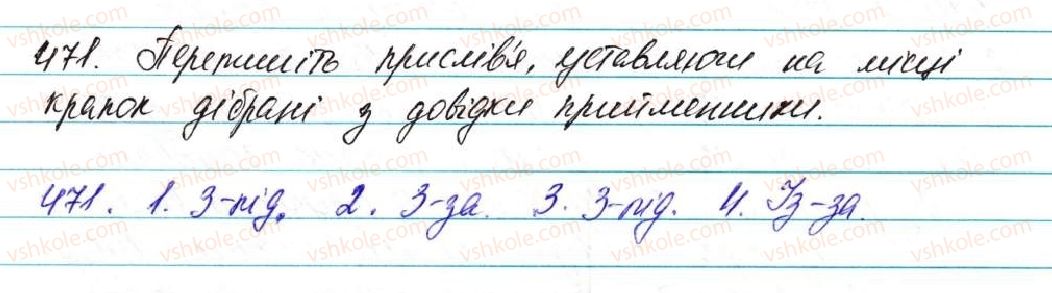 471. Перепишіть прислів'я, уставляючи на місці
крапок дібрані з довідки прийменники.
471. 1. З-під. 2. З-за. 3. З-під. 4. Із-за.